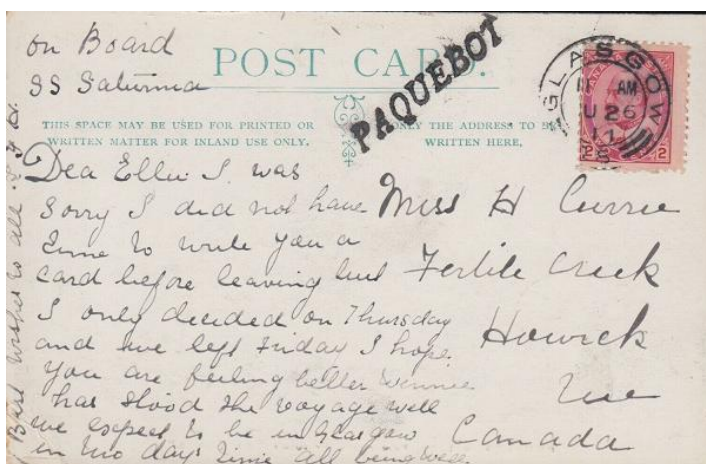 on Board
SS Saturnia
POST CARD.
PAQUEBOT
GLASGOW
AM
U 26
11
2
THIS SPACE MAY BE USED FOR PRINTED OR
WRITTEN MATTER FOR INLAND USE ONLY.
ONLY THE ADDRESS TO BE
WRITTEN HERE,
Dea Ellie I was
sorry I did not have
time to write you a
card before leaving but
I only decided on Thursday
and we left Friday I hope
you are feeling better Winnie
has stood the voyage well
we expect to be in Glasgow
in two days time all being well.
Best wishes to all
Miss H Currie
Fertile Creek
Howick
Que
Canada